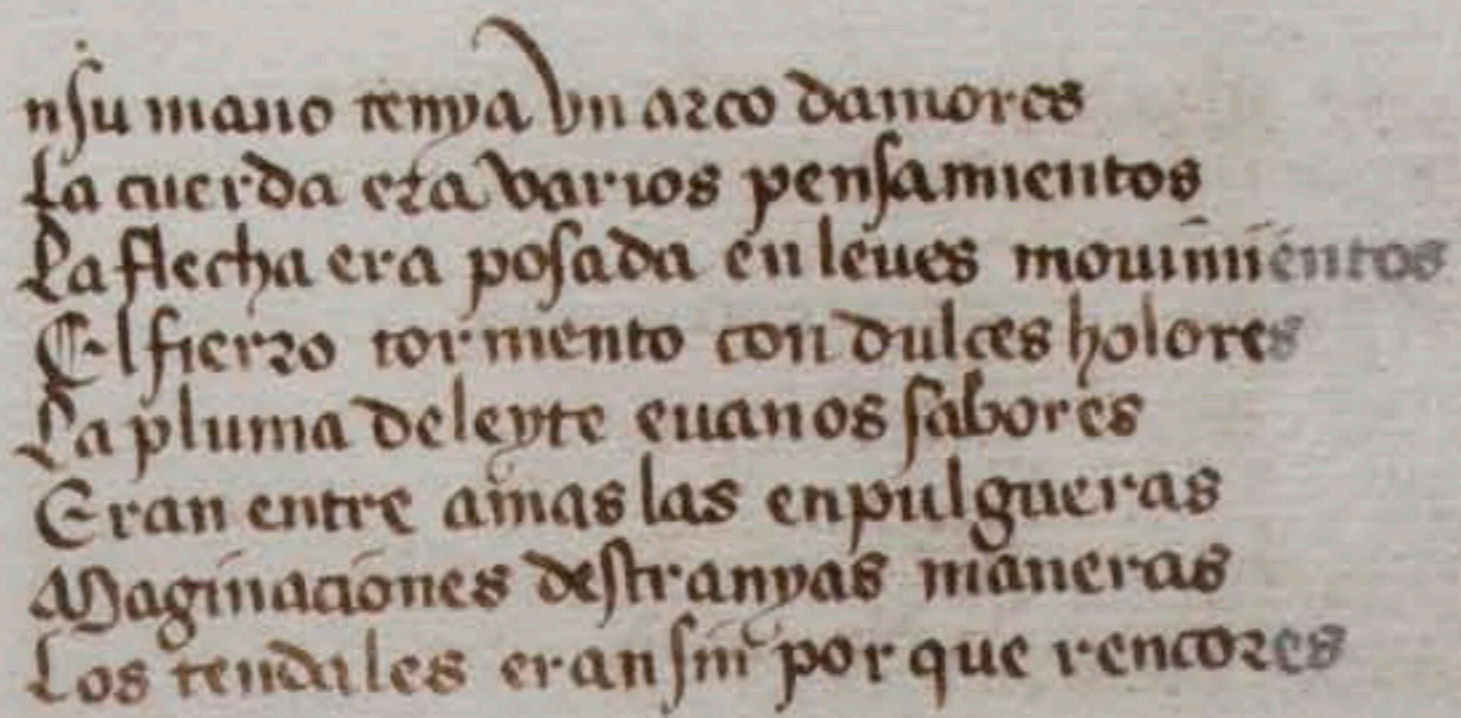 nsu mano tenya vn arco damores
La cuerda era varios pensamientos
La flecha era posada en leues mouimientos
El fierro tormento con dulces holores
La pluma deleyte euanos sabores
Eran entre amas las enpulgueras
Maginaciones destranyas maneras
Los tendales eran sin por que rencores